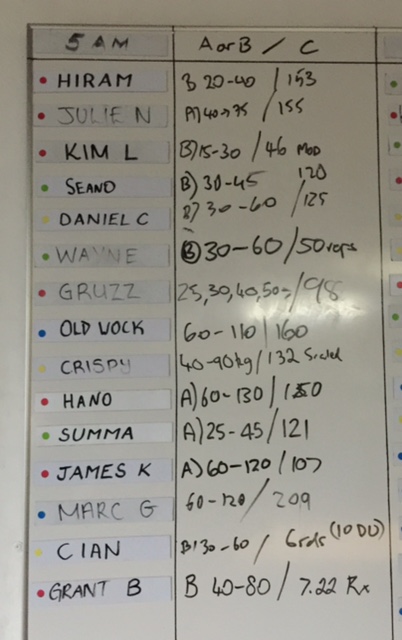 5 AM A or B / C
HIRAM B 20-40 / 153
JULIE N A) 40->75 / 155
KIM L B) 15-30 / 46 MOD
SEANO B) 30-45 120
DANIEL C B) 30-60 / 125
WAYNE B) 30-60 / 50 reps
GRUZZ 25, 30, 40, 50 / 98
OLD VOCK 60-110 / 160
CRISPY 40-90kg / 132
HANO A) 60-130 / 150
SUMMA A) 25-45 / 121
JAMES K A) 60-120 / 107
MARC G 60-120 / 209
CIAN B) 30-60 / 6rds (10 DU)
GRANT B B 40-80 / 7.22 Rx